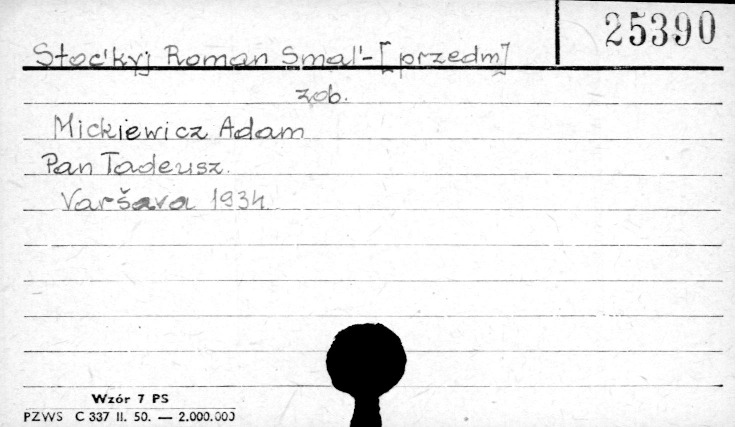 25390
Stoc'kyj Roman Smal'-[przedm]
zob.
Mickiewicz Adam
Pan Tadeusz.
Varšava 1934.
Wzór 7 PS
PZWS C 337 II. 50. — 2.000.000